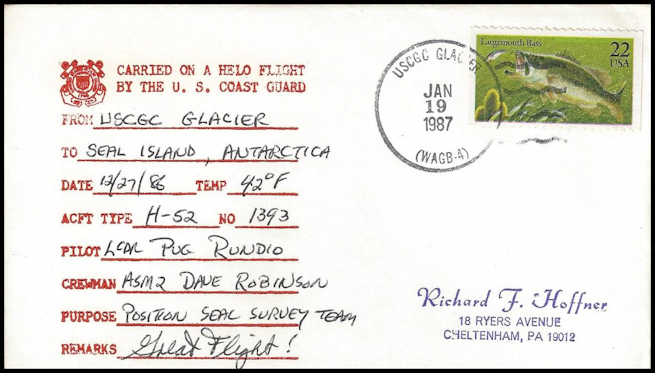 CARRIED ON A HELO FLIGHT
BY THE U. S. COAST GUARD
FROM USCGC GLACIER
TO SEAL ISLAND, ANTARCTICA
DATE 12/27/86 TEMP 42°F
ACFT TYPE H-52 NO 1393
PILOT LCDR PUG RUNDIO
CREWMAN ASM2 DAVE ROBINSON
PURPOSE POSITION SEAL SURVEY TEAM
REMARKS Great Flight!
USCGC GLACIER
JAN
19
1987
(WAGB-4)
Largemouth Bass
22
USA
Richard F. Hoffner
18 RYERS AVENUE
CHELTENHAM, PA 19012